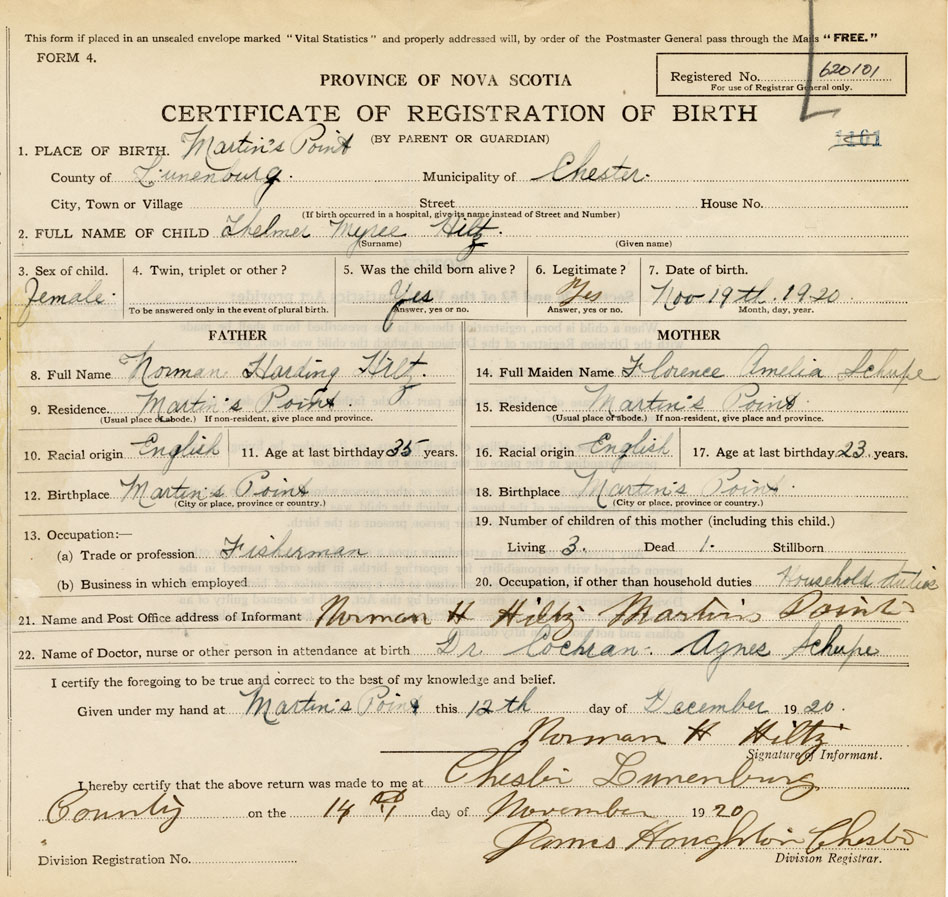 This form if placed in an unsealed envelope marked "Vital Statistics" and properly addressed will, by order of the Postmaster General pass through the Mails "FREE."
FORM 4.
PROVINCE OF NOVA SCOTIA
Registered No. 620101
For use of Registrar General only.
CERTIFICATE OF REGISTRATION OF BIRTH
(BY PARENT OR GUARDIAN)
1. PLACE OF BIRTH. Martin's Point
County of Lunenburg. Municipality of Chester.
City, Town or Village Street House No.
(If birth occurred in a hospital, give its name instead of Street and Number)
2. FULL NAME OF CHILD Thelmer Myree Hiltz.
(Surname) (Given name)
3. Sex of child. 4. Twin, triplet or other? 5. Was the child born alive? 6. Legitimate? 7. Date of birth.
Female. Yes Yes Nov 19th. 1920.
To be answered only in the event of plural birth. Answer, yes or no. Answer, yes or no. Month, day, year.
FATHER MOTHER
8. Full Name Norman Harding Hiltz. 14. Full Maiden Name Florence Amelia Schupe
9. Residence. Martin's Point 15. Residence Martin's Point.
(Usual place of abode.) If non-resident, give place and province. (Usual place of abode.) If non-resident, give place and province.
10. Racial origin English 11. Age at last birthday 35 years. 16. Racial origin English 17. Age at last birthday 23. years.
12. Birthplace Martin's Point 18. Birthplace Martin's Point.
(City or place, province or country.) (City or place, province or country.)
13. Occupation:— 19. Number of children of this mother (including this child.)
(a) Trade or profession Fisherman Living 3. Dead 1. Stillborn
(b) Business in which employed 20. Occupation, if other than household duties Household duties
21. Name and Post Office address of Informant Norman H Hiltz Martins Point
22. Name of Doctor, nurse or other person in attendance at birth Dr Cochran. Agnes Schupe
I certify the foregoing to be true and correct to the best of my knowledge and belief.
Given under my hand at Martin's Point this 12th day of December 1920.
Norman H Hiltz
Signature of Informant.
I hereby certify that the above return was made to me at Chester Lunenburg
County on the 14 day of November 1920
James Houghton Chester
Division Registration No. Division Registrar.